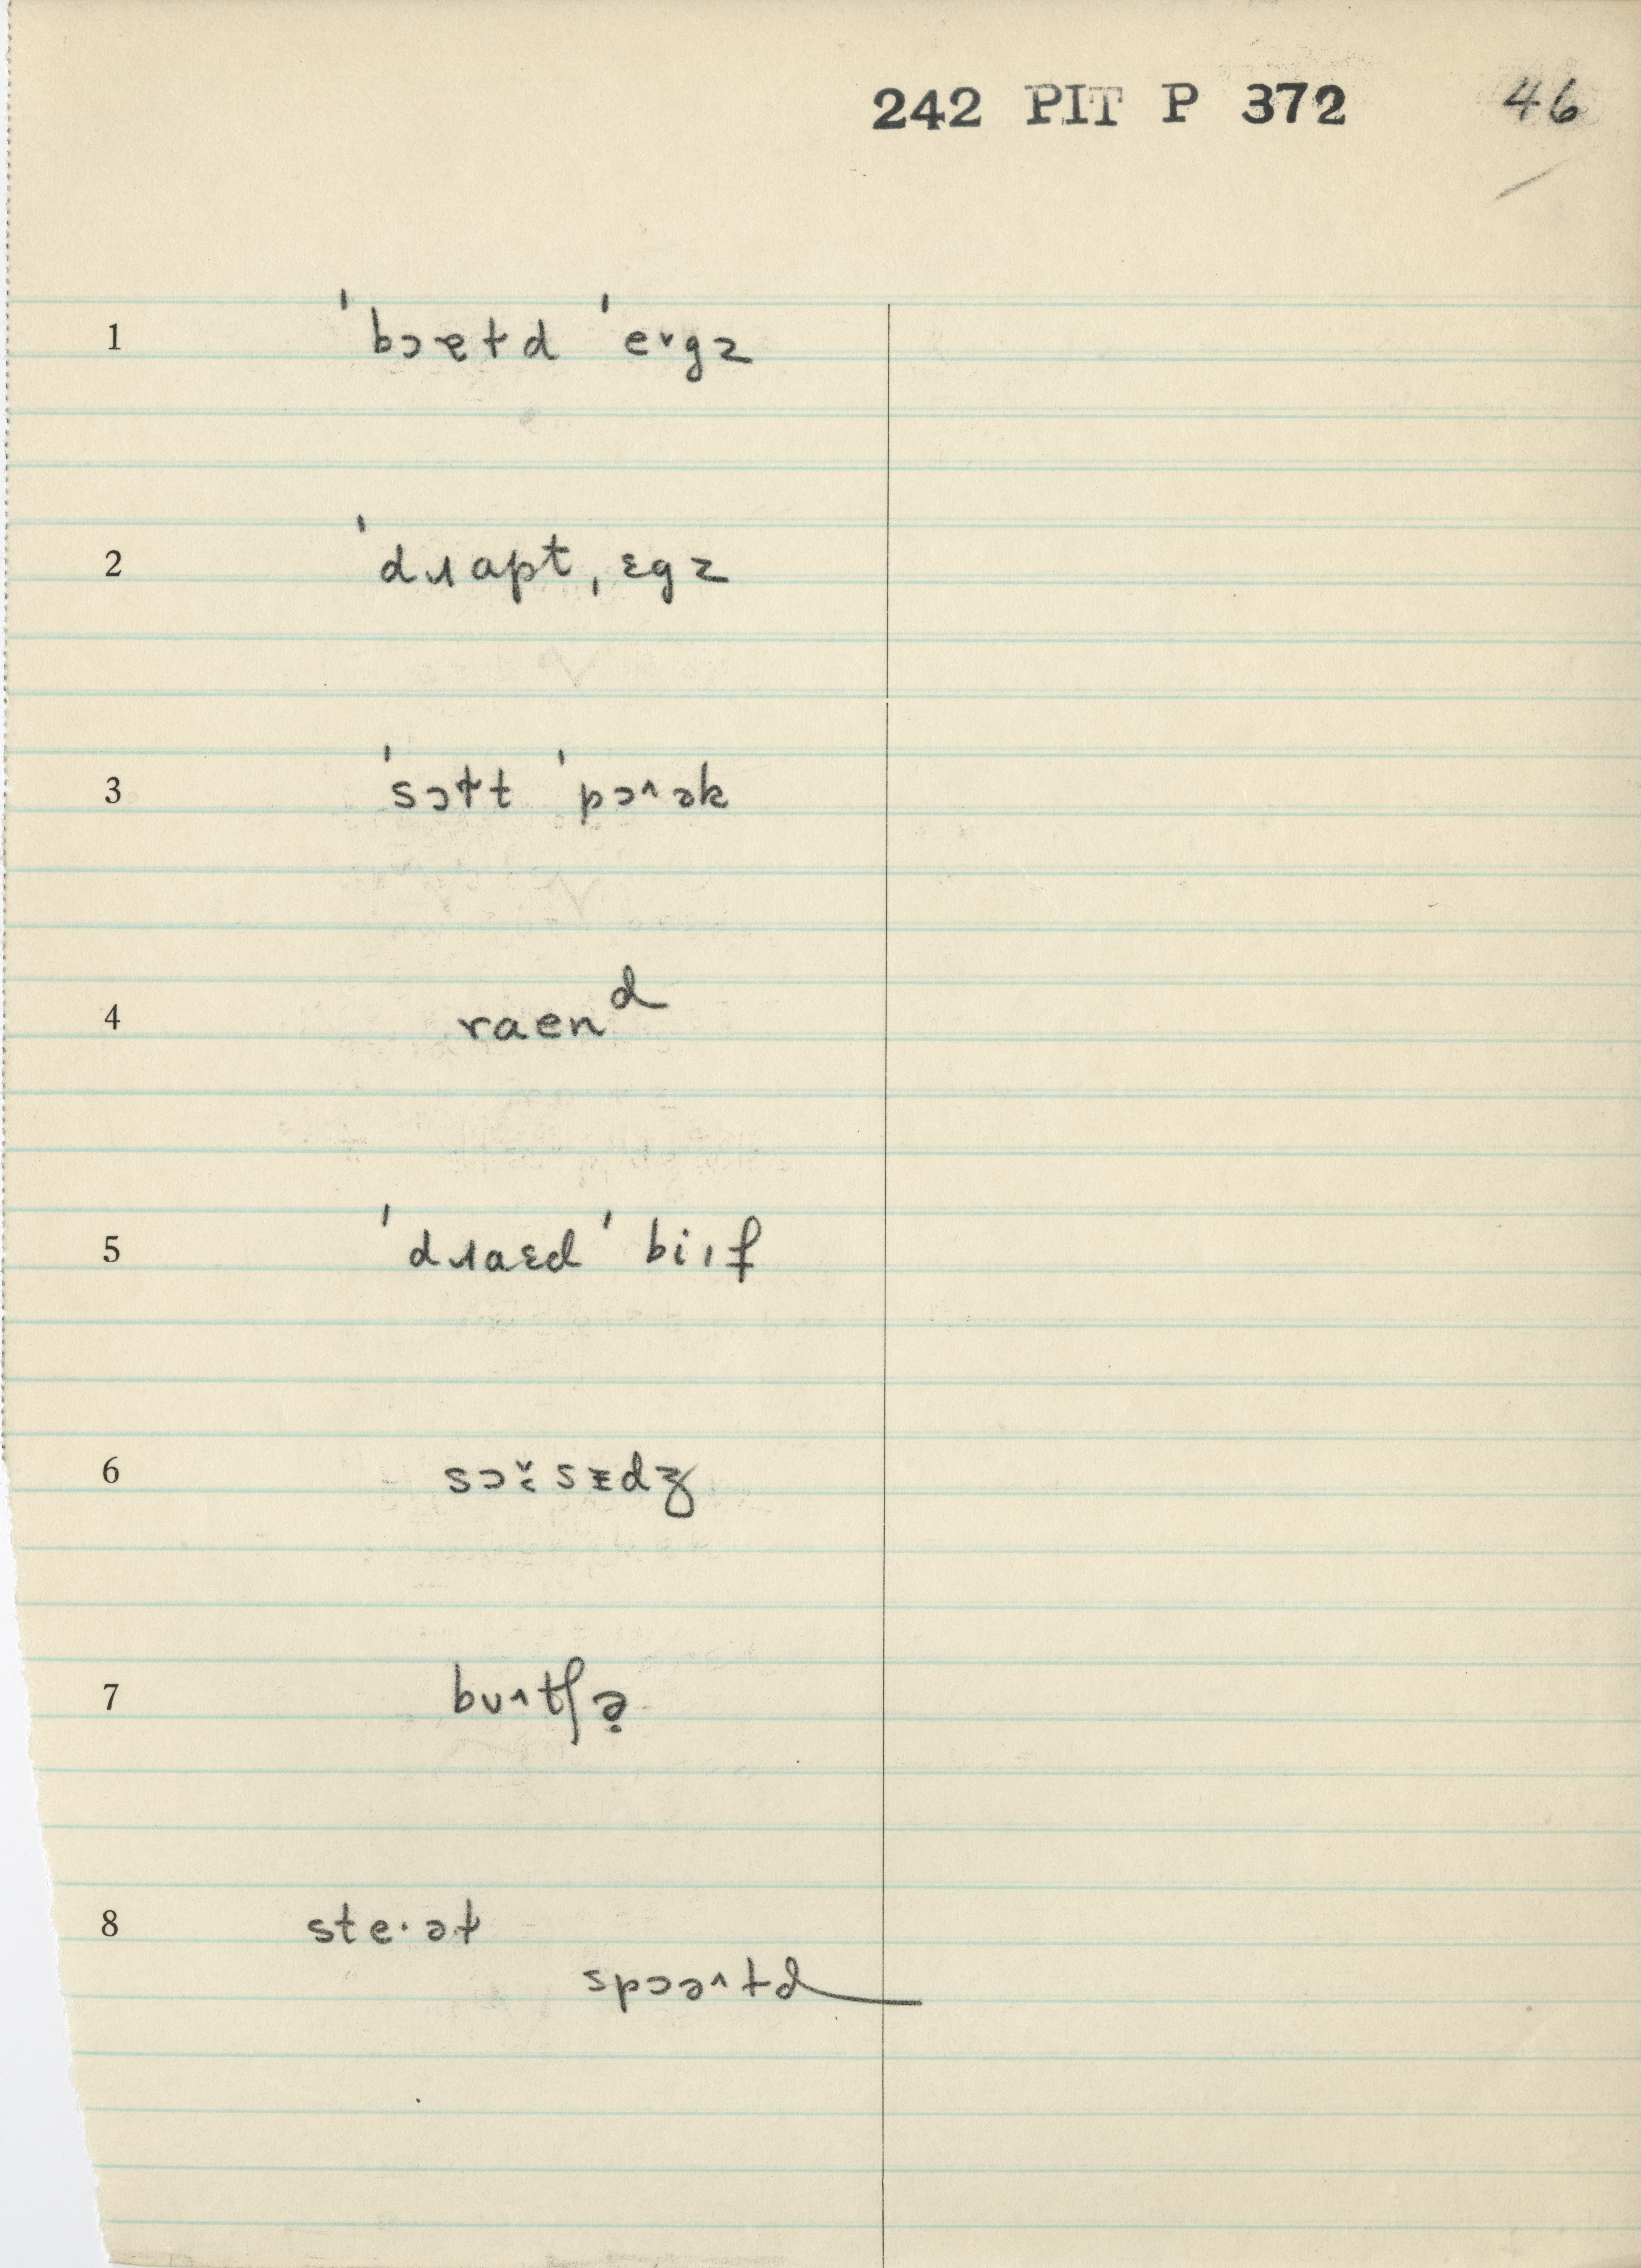 242 PIT P 372 46
1 ˈbɔɐɫd ˈe˅gz
2 ˈdɹɑpt ˌɛgz
3 ˈsɔɫt ˈpɔ˄ək
4 raenᵈ
5 ˈdɹaɛd ˈbi˔f
6 sɔɪ̆sɪdʒ
7 bʊ˄tʃə̣
8 ste·əɫ
spɔə˄ɫd